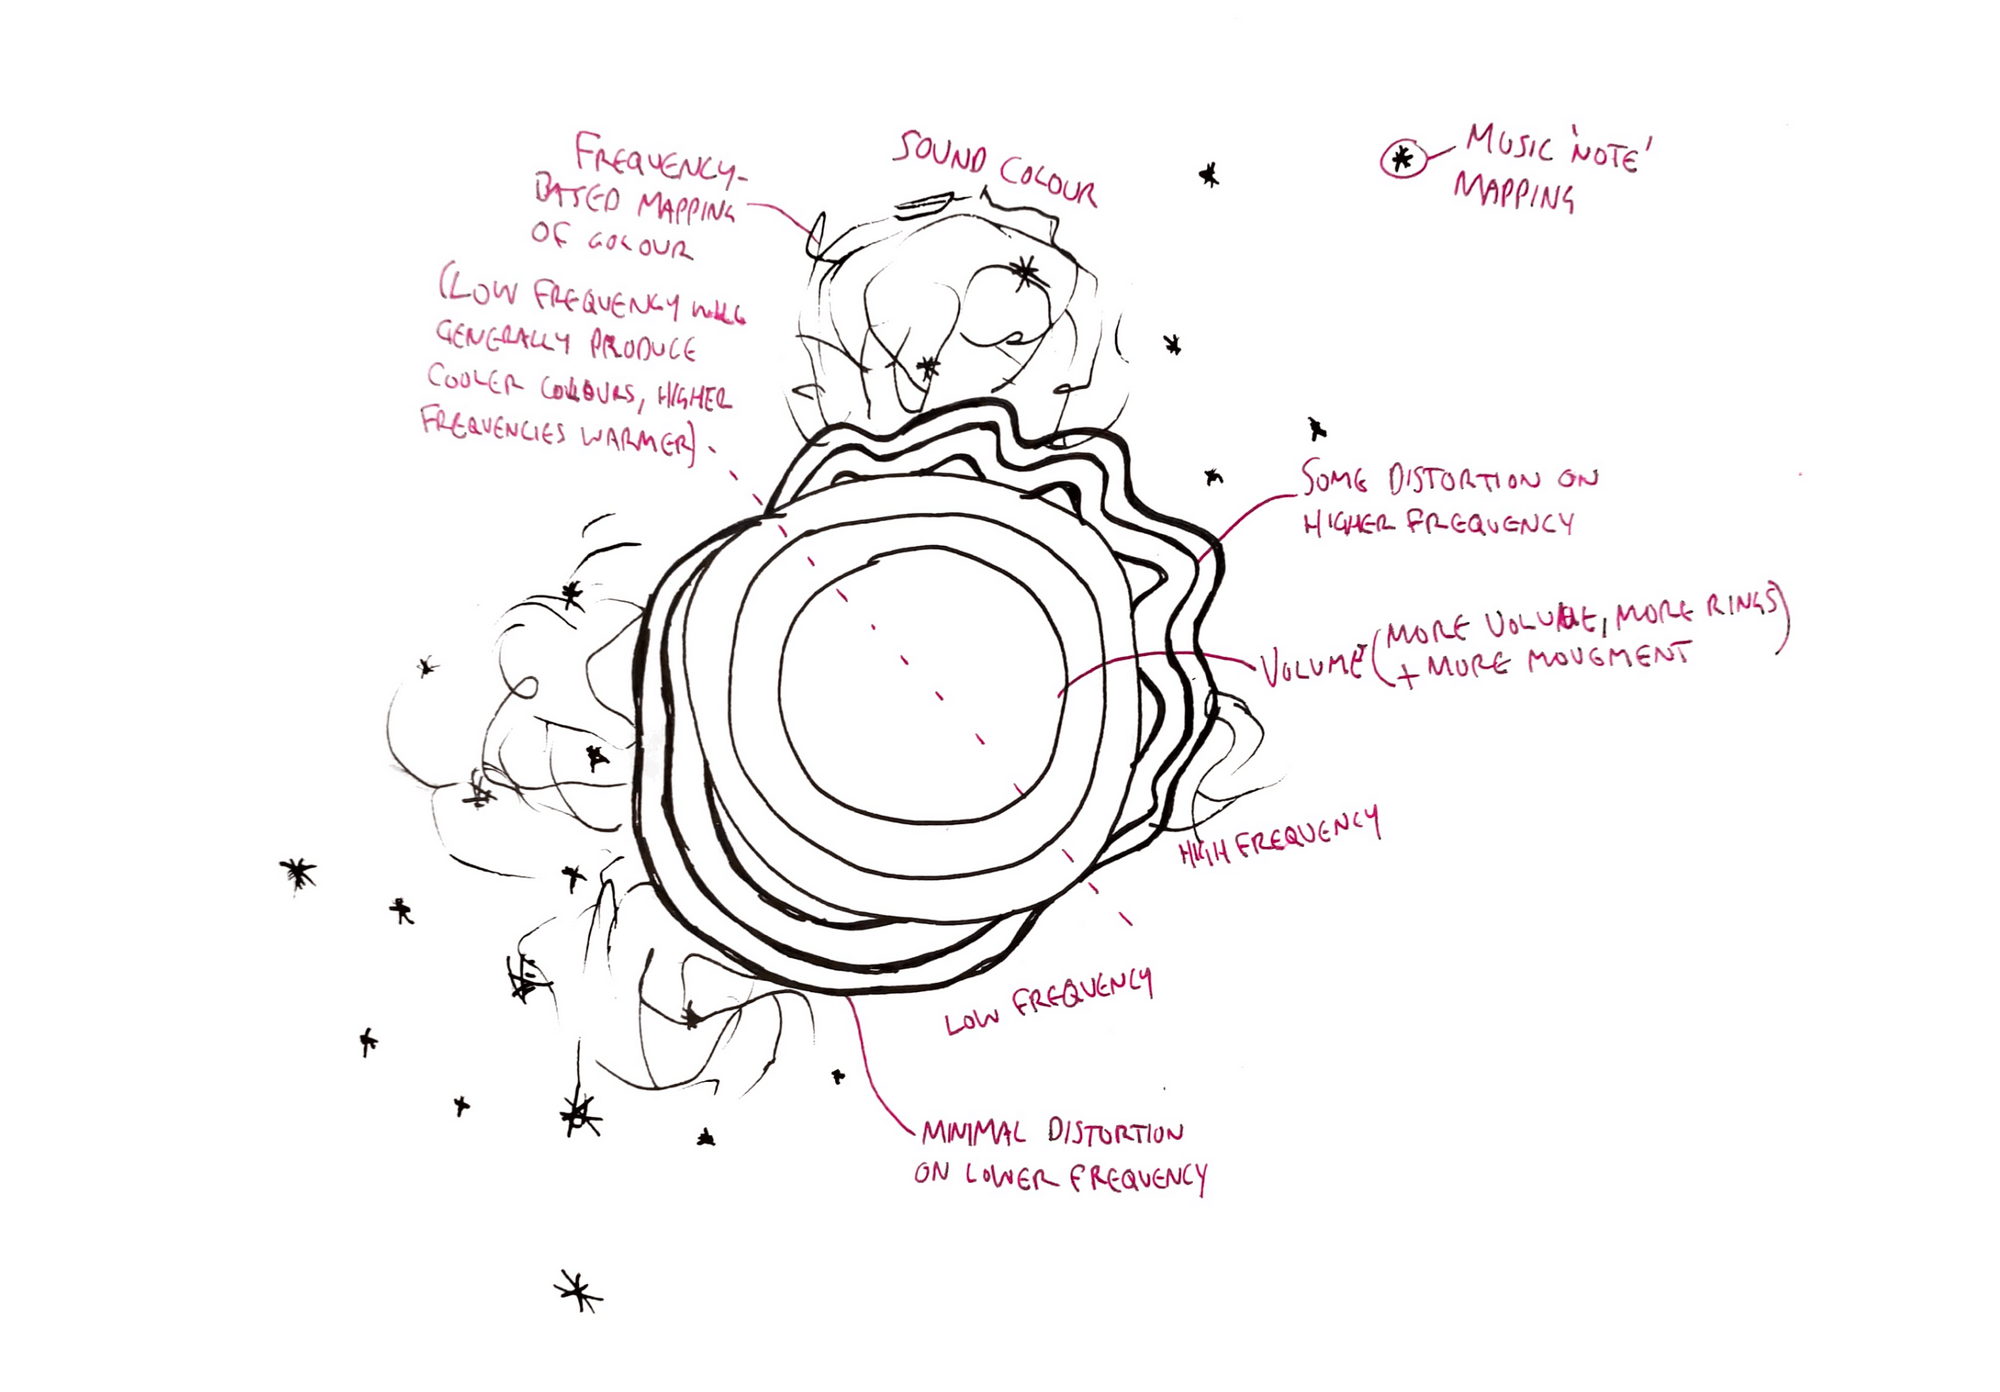 FREQUENCY-
BASED MAPPING
OF COLOUR
(LOW FREQUENCY WILL
GENERALLY PRODUCE
COOLER COLOURS, HIGHER
FREQUENCIES WARMER)
SOUND COLOUR
MUSIC 'NOTE'
MAPPING
SOME DISTORTION ON
HIGHER FREQUENCY
VOLUME (MORE VOLUME, MORE RINGS)
+ MORE MOVEMENT
HIGH FREQUENCY
LOW FREQUENCY
MINIMAL DISTORTION
ON LOWER FREQUENCY